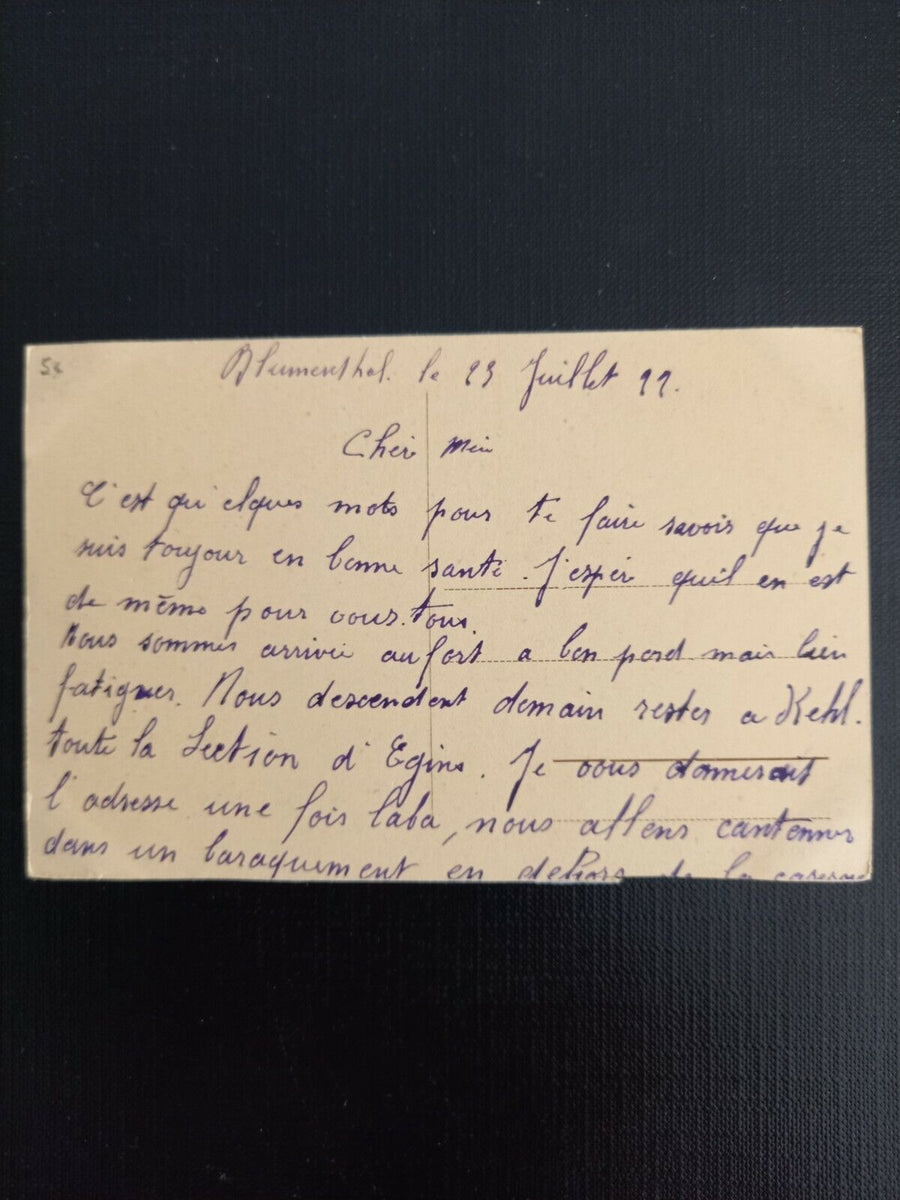 58
Blumenthal. le 23 Juillet 22.
Cher Min
C'est qu'elques mots pour te faire savoir que je
suis toujour en bonne santé. J'espér qu'il en est
de même pour vous tous.
Nous sommes arrivée au fort a bon pord mais bien
fatiguer. Nous descendent demain rester a Kehl.
toute la Section d'Egins. Je vous donnerait
l'adresse une fois laba, nous allens cantenner
dans un baraquement en dehors de la caserne